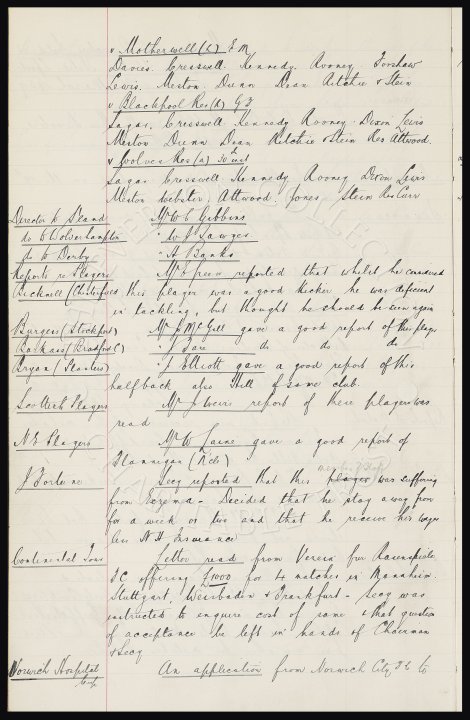 v Motherwell (h) F.M.
Davies. Cresswell. Kennedy. Rooney. Forshaw
Lewis. Meston. Dunn Dean Ritchie & Stein
v Blackpool Res (a) G.J.
Sagar. Cresswell. Kennedy Rooney. Dixon Lewis
Meston Dunn Dean Ritchie & Stein Res Attwood.
v Wolves Res (a) 30 inst
Sagar Cresswell Kennedy Rooney Dixon Lewis
Meston Webster. Attwood. Jones Stein Res Curr
Director to Stand Mr W C Gibbins
do to Wolverhampton " W J Sawyer
do to Derby " A Banks
Reports re Players Mr Green reported that whilst he considered
Bicknell (Chesterfield) this player was a good kicker he was deficient
in tackling, but thought he should be seen again
Burgess (Stockport) Mr J McGill gave a good report of this player
(Bradford C) " J do do do
Bryan J Elliott gave a good report of this
halfback also Hill of same club.
Scottish Players Mr J Weirs report of these players was
read
N.E. Players Mr W Laine gave a good report of
Flannigan
J Fortune Secy reported that this player was suffering
from Eczema - Decided that he stay away from
for a week or two and that he receive his wages
less N.H. Insurance
Continental Tour Letter read from Verein fur Rasenspiele
F.C. offering £1000 for 4 matches in Mannheim.
Stuttgart, Weisbaden & Frankfurt - Secy was
instructed to enquire cost of same & that question
of acceptance be left in hands of Chairman
& Secy
Norwich Hospitals An application from Norwich City F.C. to